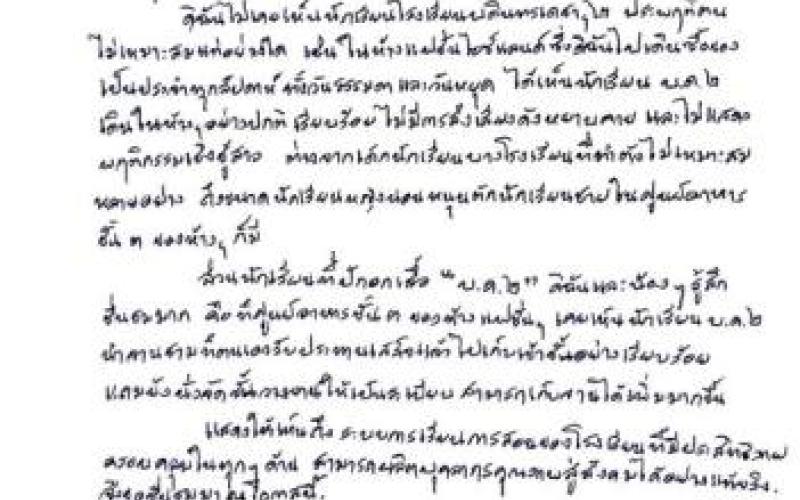 ดิฉันไม่เคยเห็นนักเรียนโรงเรียนบดินทรเดชาฯ ๒ ประพฤติตน
ไม่เหมาะสมแต่อย่างใด เช่น ในห้างแฟชั่นไอซ์แลนด์ ซึ่งดิฉันไปเดินซื้อของ
เป็นประจำทุกสัปดาห์ ทั้งวันธรรมดาและวันหยุด ได้เห็นนักเรียน บ.ด.๒
เดินในห้างฯ อย่างปกติ เรียบร้อย ไม่มีการส่งเสียงดังหยาบคาย และไม่แสดง
พฤติกรรมเชิงชู้สาว ต่างจากเด็กนักเรียนบางโรงเรียนที่ทำตัวไม่เหมาะสม
หลายอย่าง ถึงขนาดนักเรียนหญิงนอนหนุนตักนักเรียนชายในศูนย์อาหาร
ชั้น ๓ ของห้างฯ ก็มี
ส่วนนักเรียนที่ปักอกเสื้อ "บ.ด.๒" ดิฉันและน้องๆ รู้สึก
ชื่นชมมาก คือที่ศูนย์อาหารชั้น ๓ ของห้างแฟชั่นฯ เคยเห็นนักเรียน บ.ด.๒
นำจานชามที่ตนเองรับประทานเสร็จแล้วไปเก็บเข้าชั้นอย่างเรียบร้อย
แถมยังจัดชั้นวางจานให้เป็นระเบียบ สามารถเก็บจานได้เพิ่มมากขึ้น
แสดงให้เห็นถึง ระบบการเรียนการสอนของโรงเรียนที่มีประสิทธิภาพ
ครอบคลุมในทุกๆ ด้าน สามารถผลิตบุคลากรคุณภาพสู่สังคมได้อย่างแท้จริง
จึงขอชื่นชมมา ณ โอกาสนี้.